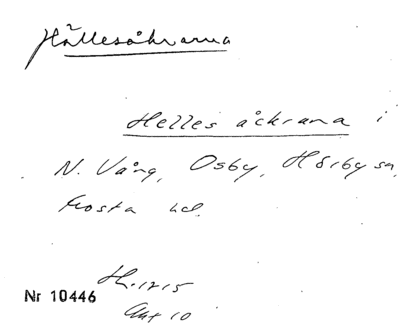 Hällesåkrarna
Helles åckrana i
N. Vång, Osby, Hörby sn,
Frosta hd.
H. 1715
Nr 10446
Akt 10